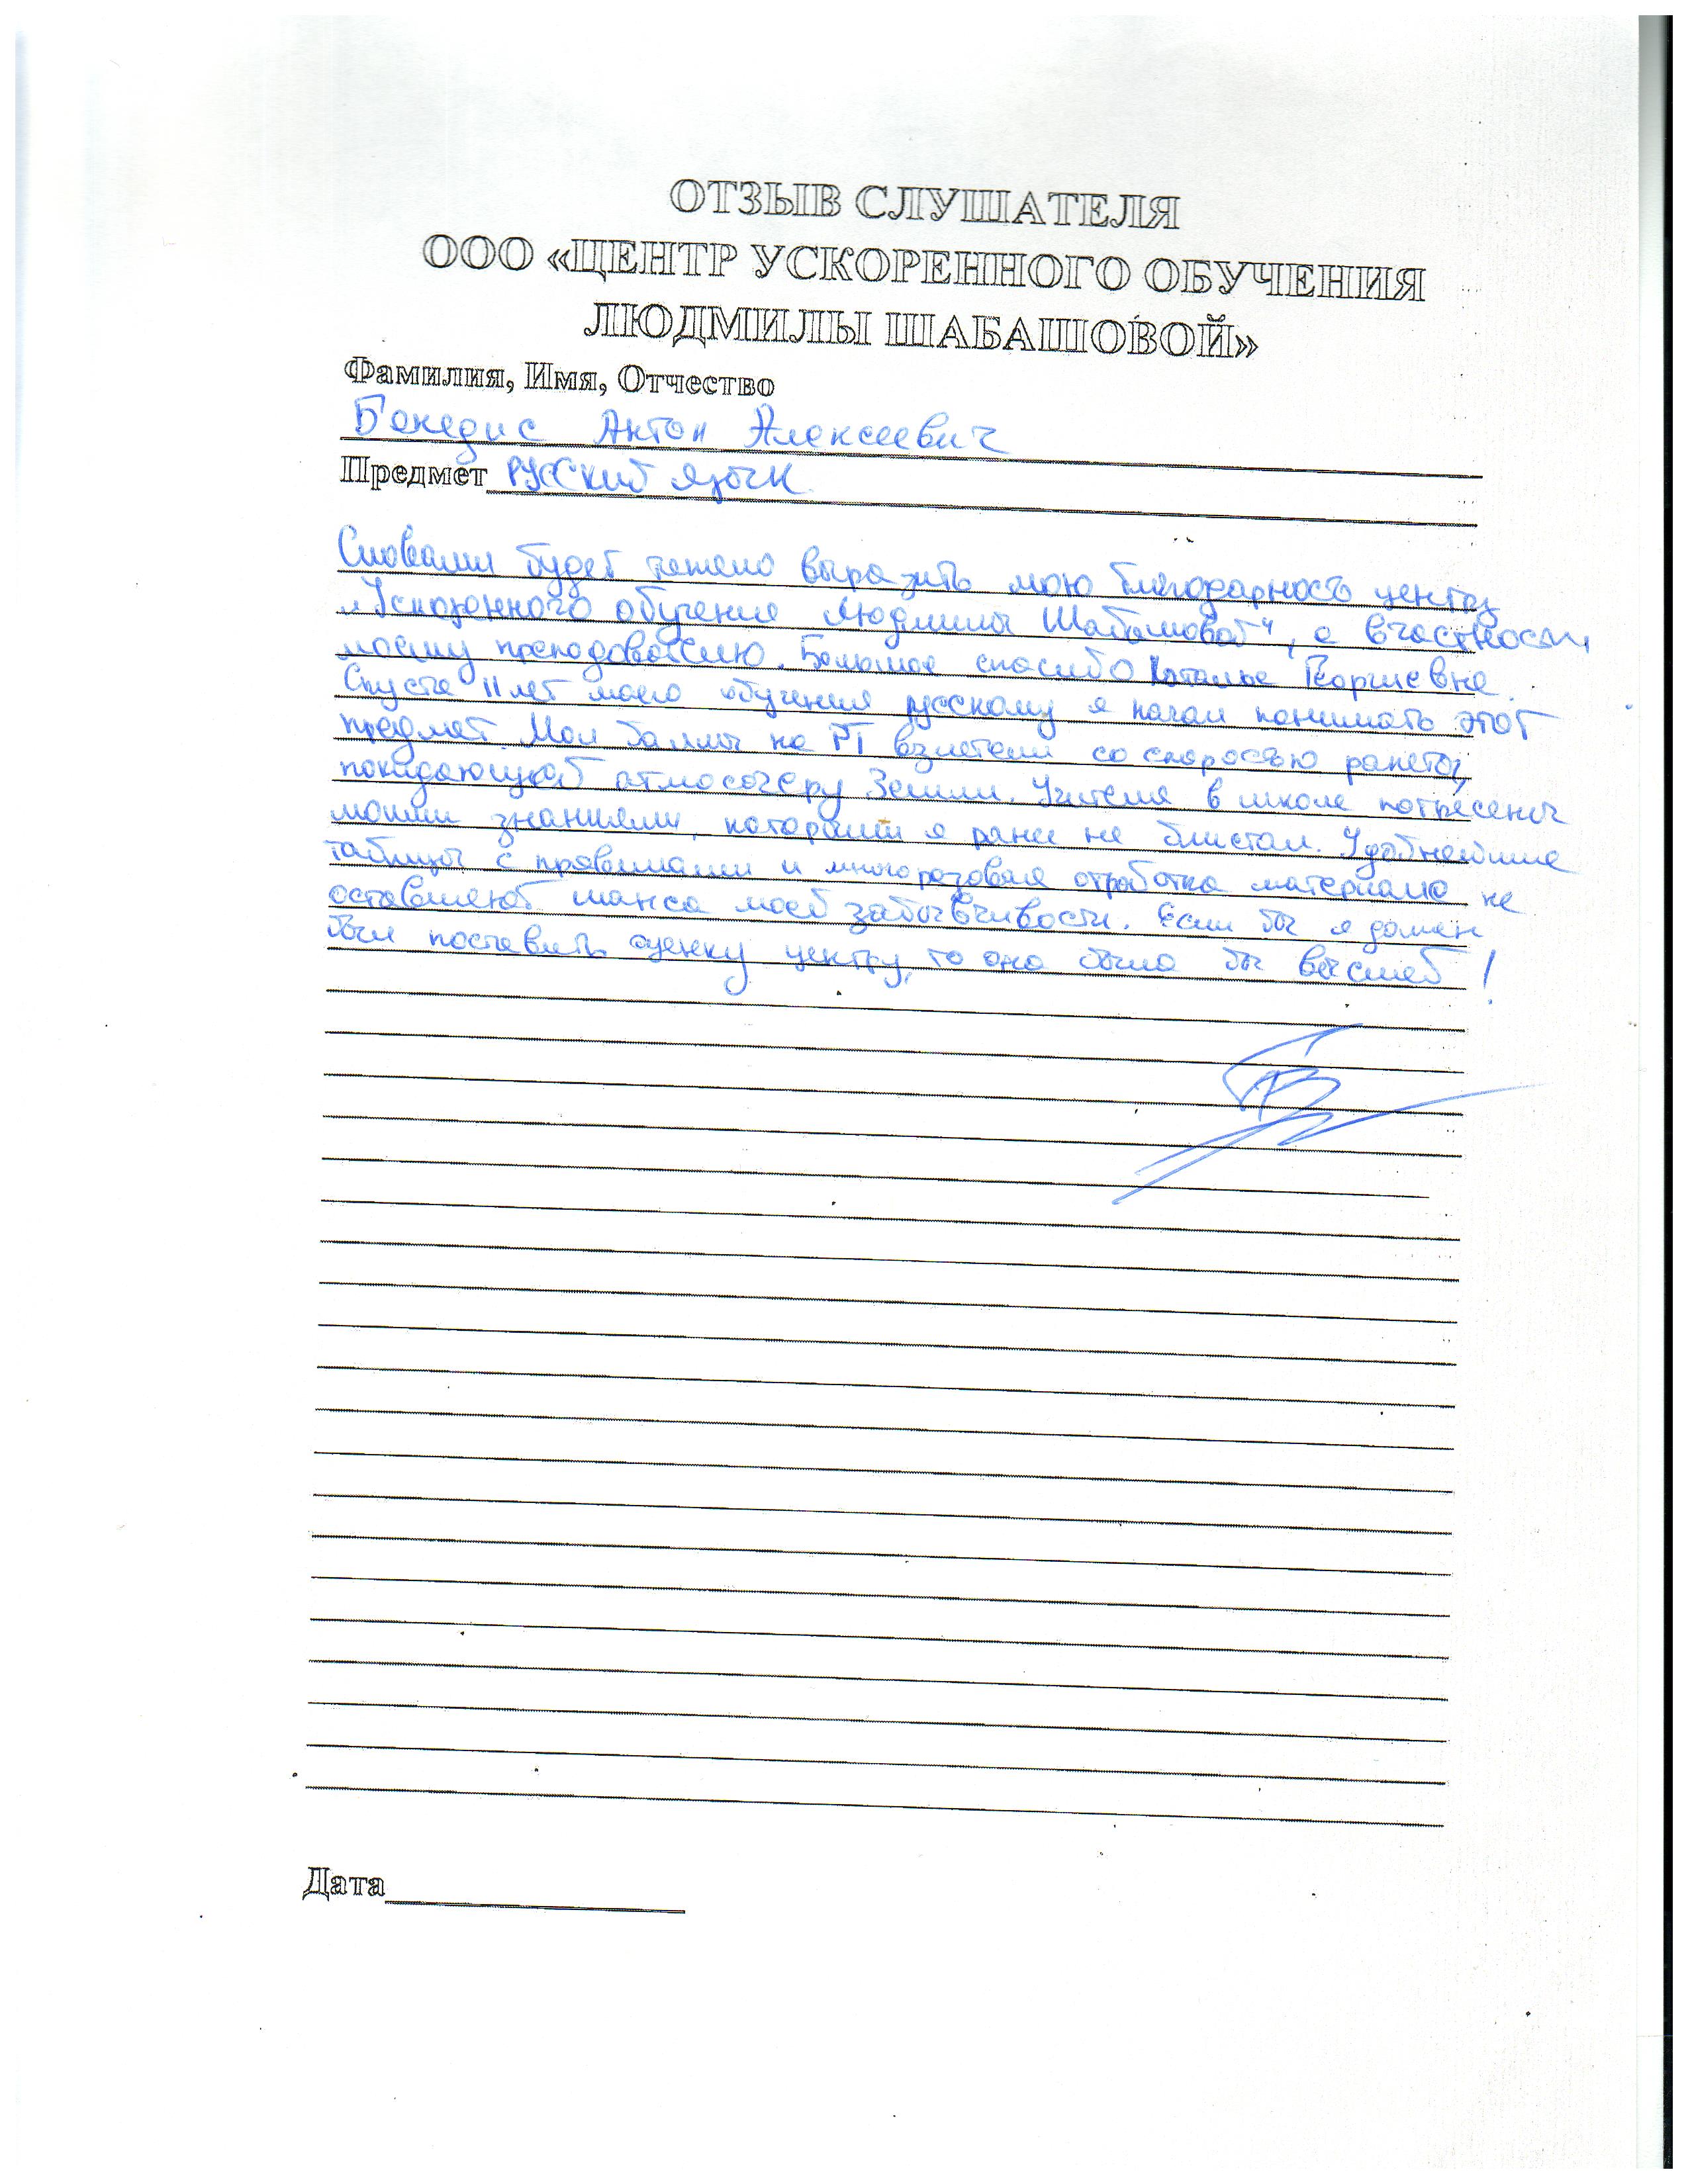 ОТЗЫВ СЛУШАТЕЛЯ
ООО «ЦЕНТР УСКОРЕННОГО ОБУЧЕНИЯ
ЛЮДМИЛЫ ШАБАШОВОЙ»
Фамилия, Имя, Отчество
Бенедис Антон Алексеевич
Предмет русский язык
Словами будет тяжело выразить мою благодарность центру
"Ускоренного обучения Людмилы Шабашовой", а в частности
моему преподователю. Большое спасибо Наталье Георгиевне.
Спустя 11 лет моего обучения русскому я начал понимать этот
предмет. Мои баллы на РТ взлетели со скоростью ракеты,
покидающей атмосферу Земли. Учителя в школе потрясены
моими знаниями, которыми я ранее не блистал. Удобнейшие
таблицы с правилами и многоразовая отработка материала не
оставляют шанса моей забывчивости. Если бы я должен
был поставить оценку центру, то она была бы высшей!
Дата